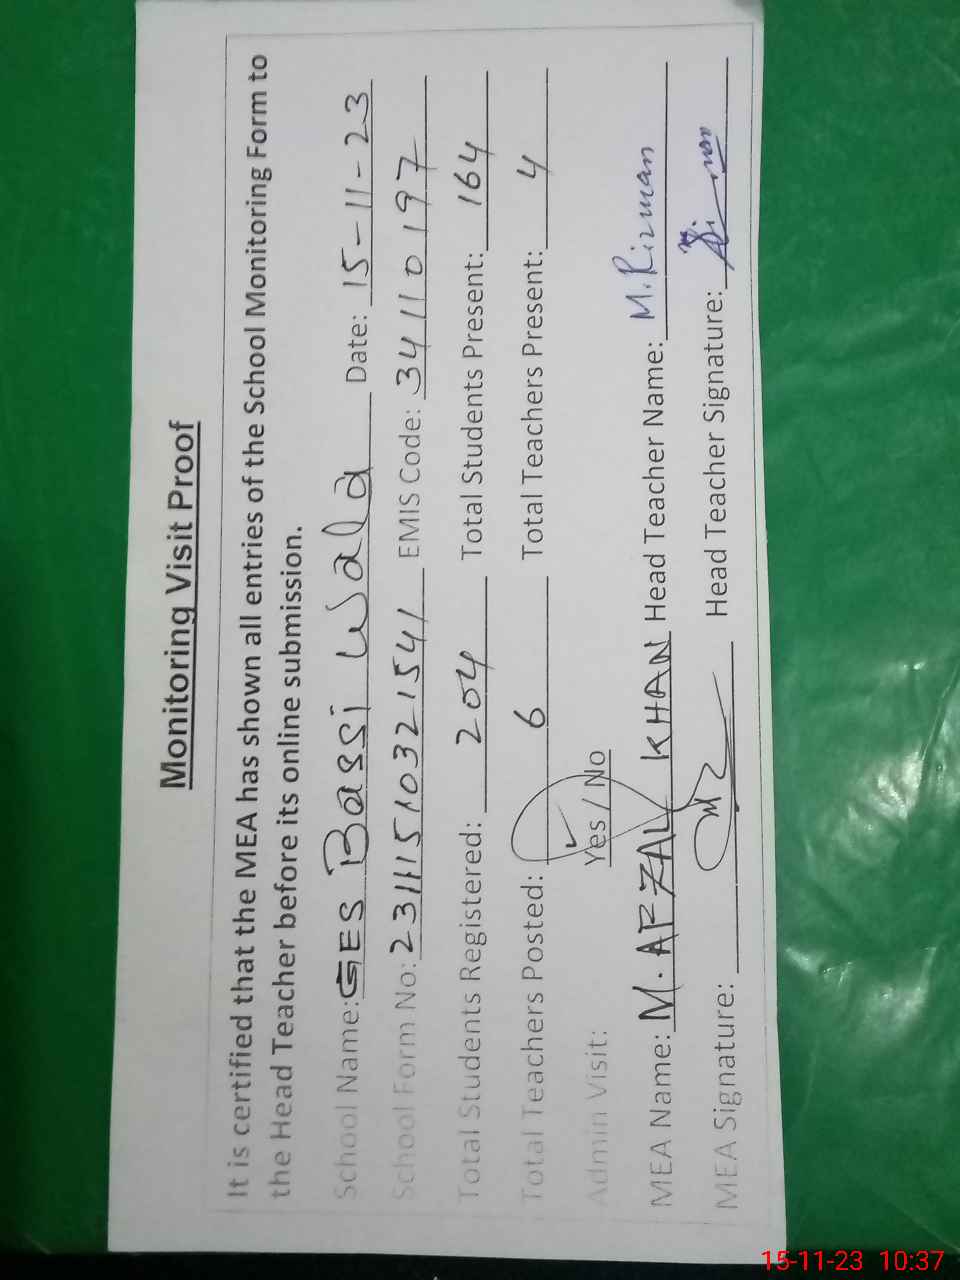 Monitoring Visit Proof
It is certified that the MEA has shown all entries of the School Monitoring Form to
the Head Teacher before its online submission.
School Name: GES Bassi Wala Date: 15-11-23
School Form No: 23111510321541 EMIS Code: 34110197
Total Students Registered: 204 Total Students Present: 164
Total Teachers Posted: 6 Total Teachers Present: 4
Admin Visit: Yes / No
MEA Name: M. AFZAL KHAN Head Teacher Name: M. Rizwan
MEA Signature: Head Teacher Signature:
15-11-23 10:37